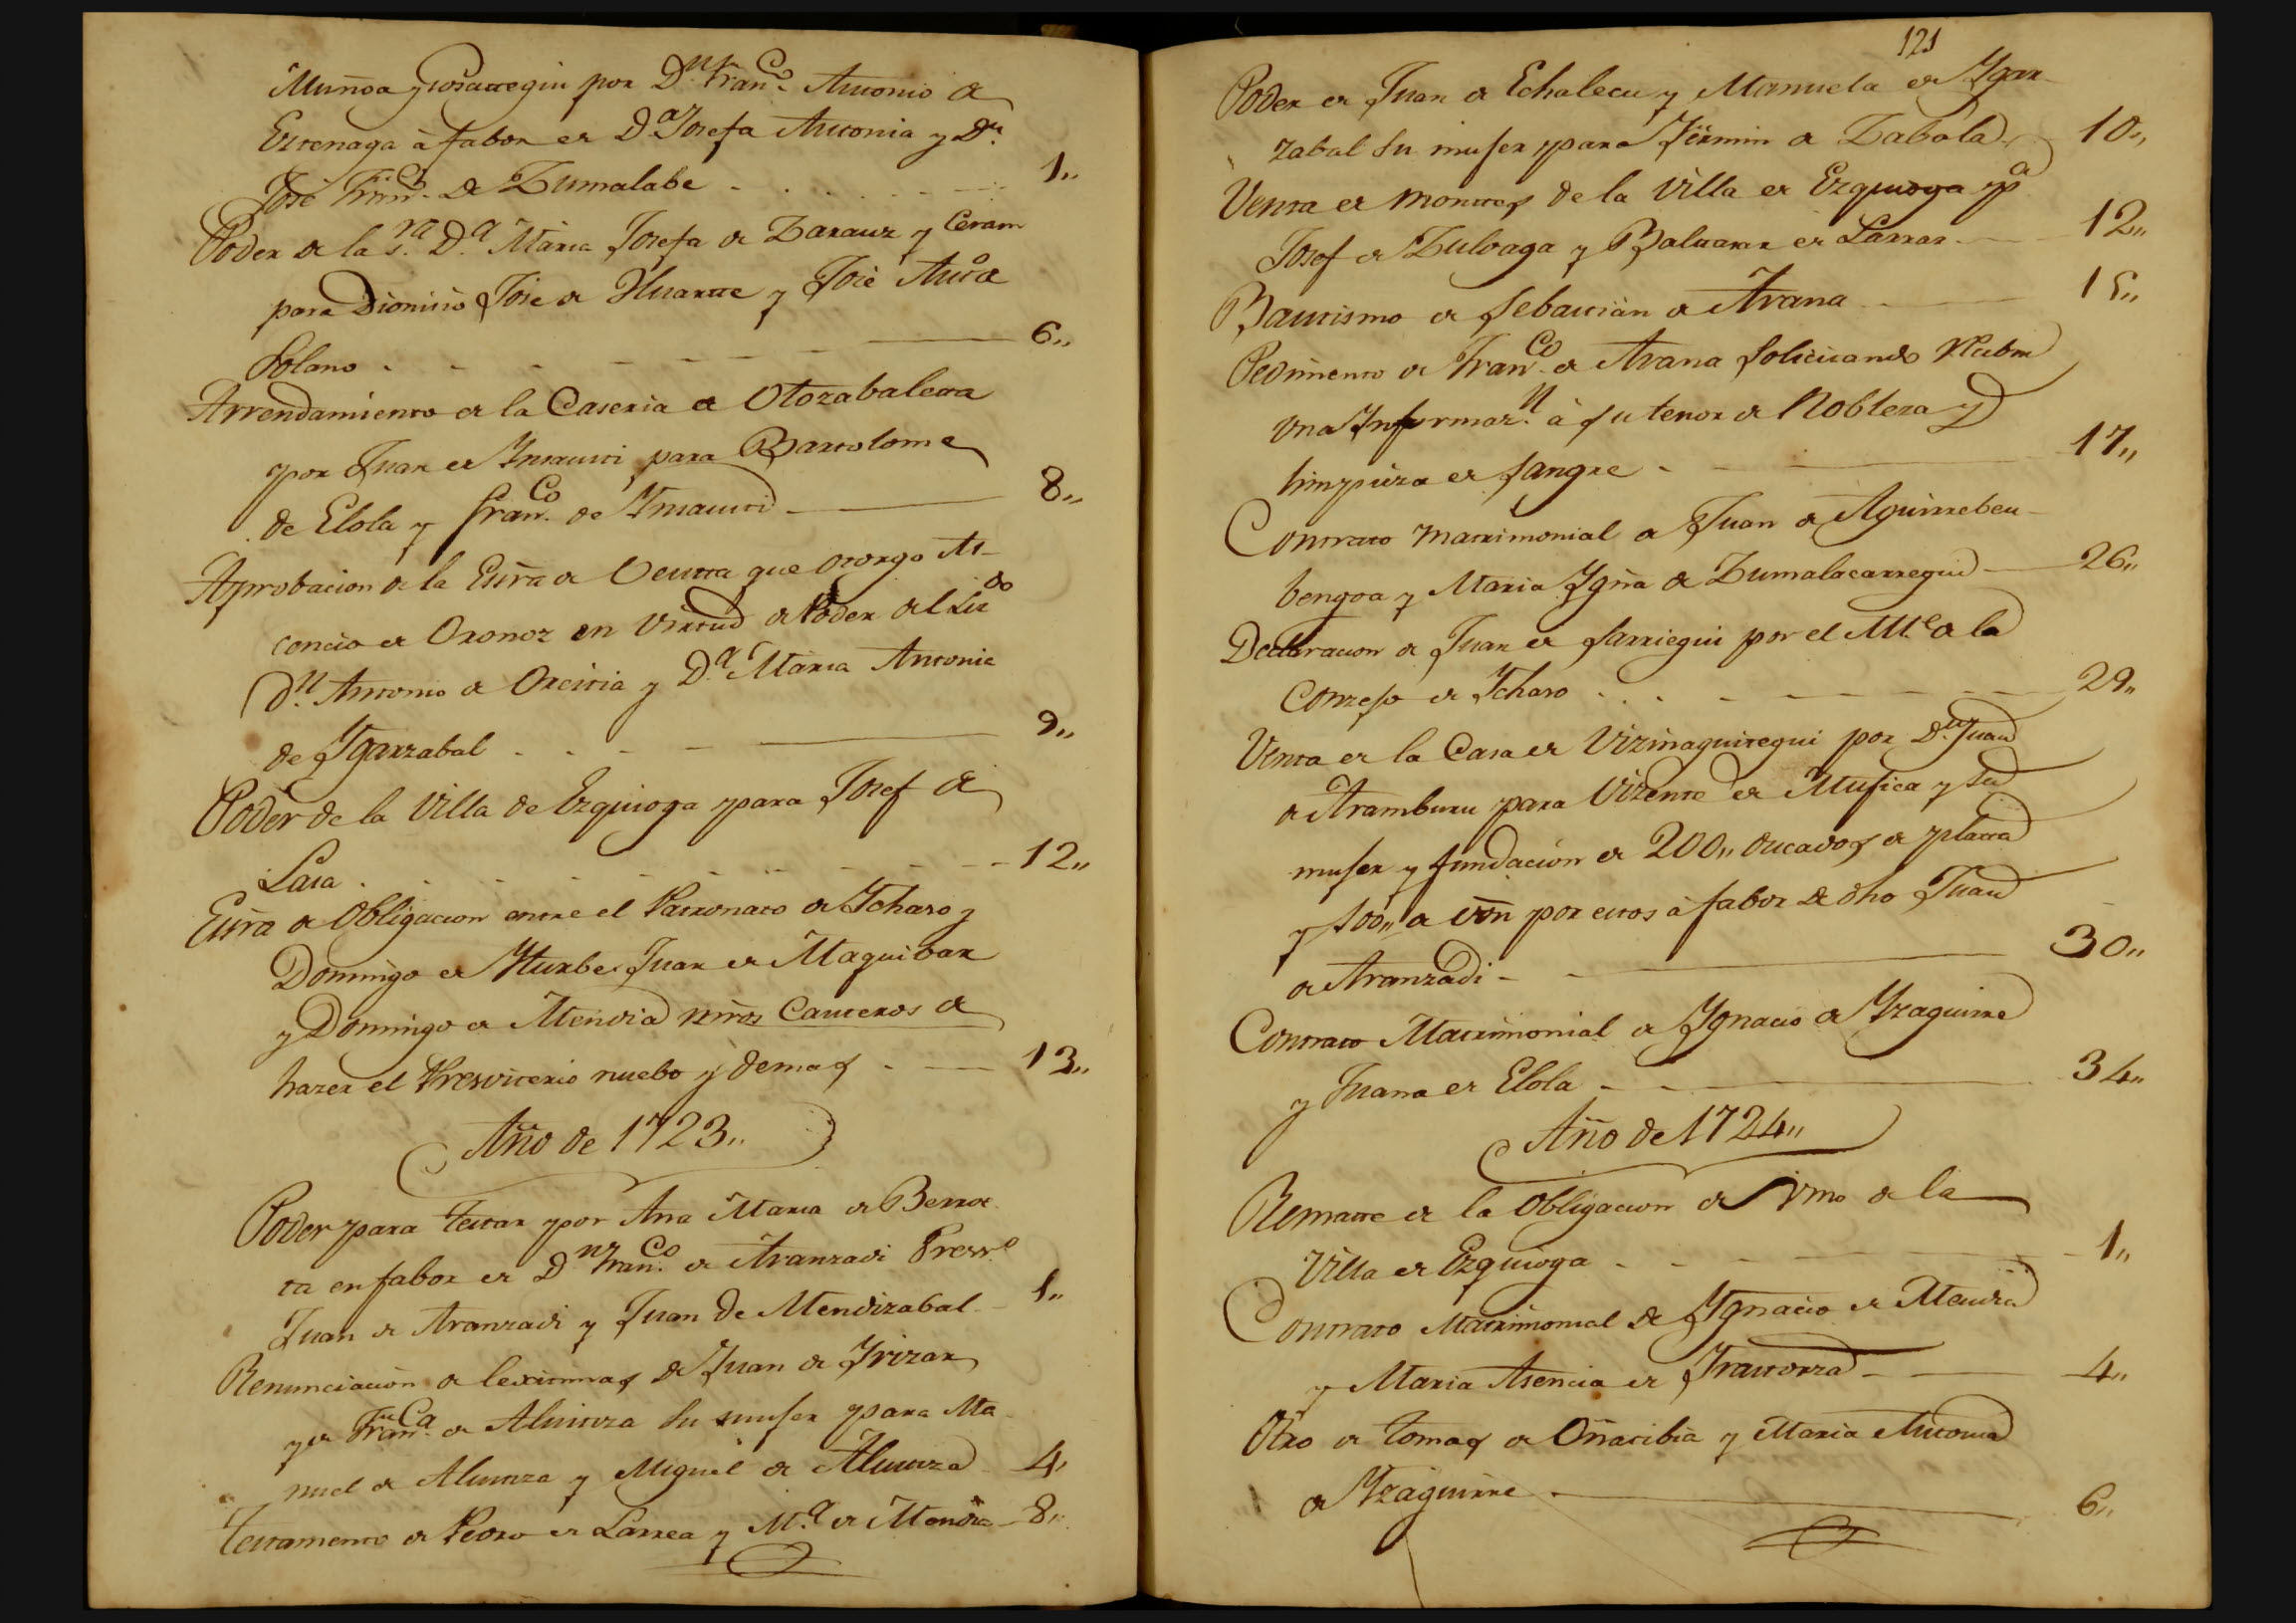 Munoa y Josategui por Dn. Franco. Antonio de
Eztenaga à fabor de Da. Josefa Antonia y Dn.
José Franco. De Zumalabe - - - - 1,,
Poder de la Sra. Da. Maria Josefa de Zarauz y Ceram
para Dionisio Jose de Huarte y José Anto. de
Solano - - - - 6,,
Arrendamiento de la Caseria de Otozabaleta
por Juan de Insausti para Bartolome
de Elola y Franco. de Insausti - 8,,
Aprobacion de la Esra de Venta que otorgo At-
concio de Oronoz en Virtud de Poder del Lizdo
Dn. Antonio de Orcitia y Da. Maria Antonia
de Ygarzabal - - - - 9,,
Poder de la Villa de Ezquioga para Josef de
Lasa - - - - 12,,
Esra de Obligacion entre el Patronato de Ychaso y
Domingo de Yturbe Juan de Maguibar
y Domingo de Mendia mros Canteros de
hazer el Presviterio nuebo y demas - 13,,
Año de 1723,,
Poder para testar por Ana Maria de Berroe-
ta en fabor de Dn. Franco. de Aranzadi Presvo.
Juan de Aranzadi y Juan De Mendizabal - 1,,
Renunciacion de lexitimas de Juan de Yrizar
y de Franca. de Aluiztiza su muger para Ma-
nuel de Aluiztiza y Miguel de Aluiztiza 4,
Testamento de Pedro de Larrea y Ma. de Mendia - 8,,
121
Poder de Juan de Echalecu y Manuela de Ygar-
zabal su muger para Fermin de Zabala 10,,
Venta de montes de la Villa de Ezquioga pa.
Josef de Zuloaga y Baluarte de Larrar - 12,,
Bautismo de Sebastian de Arana - 15,,
Pedimento de Franco. de Arana solicitando Recibir
una Informazn. à su tenor de Nobleza y
limpieza de sangre - 17,,
Contrato matrimonial de Juan de Aguirrebeu-
bengoa y Maria Ygna de Zumalacarregui - 26,,
Declaracion de Juan de Sarriegui por el Mte. de la
Conzejo de Ychaso - - - - 29,,
Venta de la Casa de Vizinaguiregui por Dn. Juan
de Aramburu para Vizente de Mugica y su
muger y fundacion de 200,, ducados de plata
y 100,, de von por estos à fabor de dho Juan
de Aranzadi - - 30,,
Contrato Matrimonial de Ygnacio de Yzaguirre
y Juana de Elola - - 34,,
Año de 1724,,
Remate de la Obligacion de Vino de la
Villa de Ezquioga - - - - 1,,
Contrato Matrimonial de Ygnacio de Mendia
y Maria Asencia de Yraztorza - 4,,
Otro de Tomas de Oñatibia y Maria Antonia
de Yzaguirre - 6,,